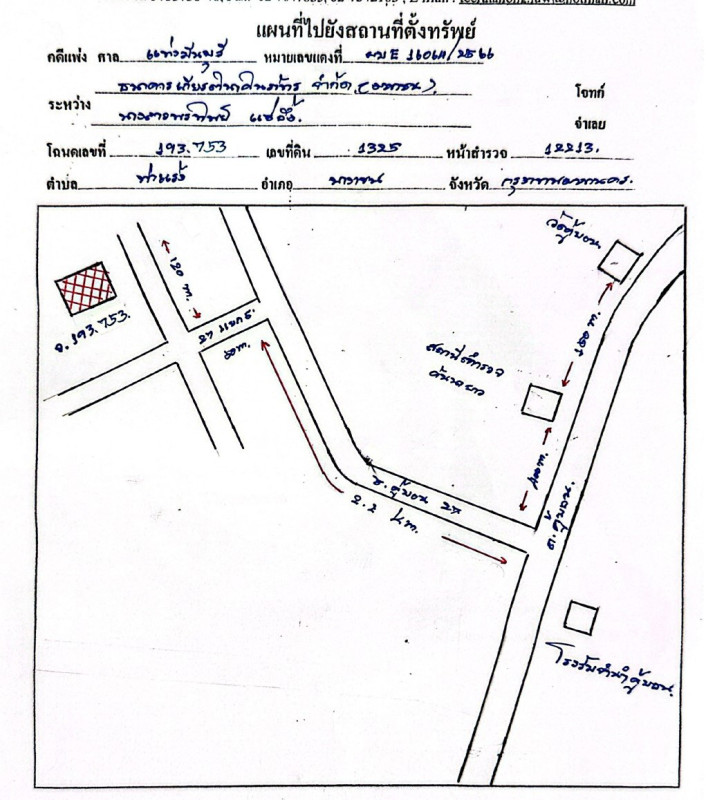 แผนที่ไปยังสถานที่ตั้งทรัพย์
คดีแพ่ง ศาล แพ่งมีนบุรี หมายเลขแดงที่ ผบE 1606/2566
ธนาคารเกียรตินาคินภัทร จำกัด (มหาชน) โจทก์
ระหว่าง
จำเลย
โฉนดเลขที่ 193753 เลขที่ดิน 1325 หน้าสำรวจ 12213
ตำบล ท่าแร้ง อำเภอ บางเขน จังหวัด กรุงเทพมหานคร
วัดคู้บอน
120 m.
150 m.
27 แยก 5
ฉ. 193753.
50 m.
สถานีตำรวจ
คันนายาว
400 m.
ซ. คู้บอน 27
2.2 km.
ถ. คู้บอน
โรงรับจำนำคู้บอน